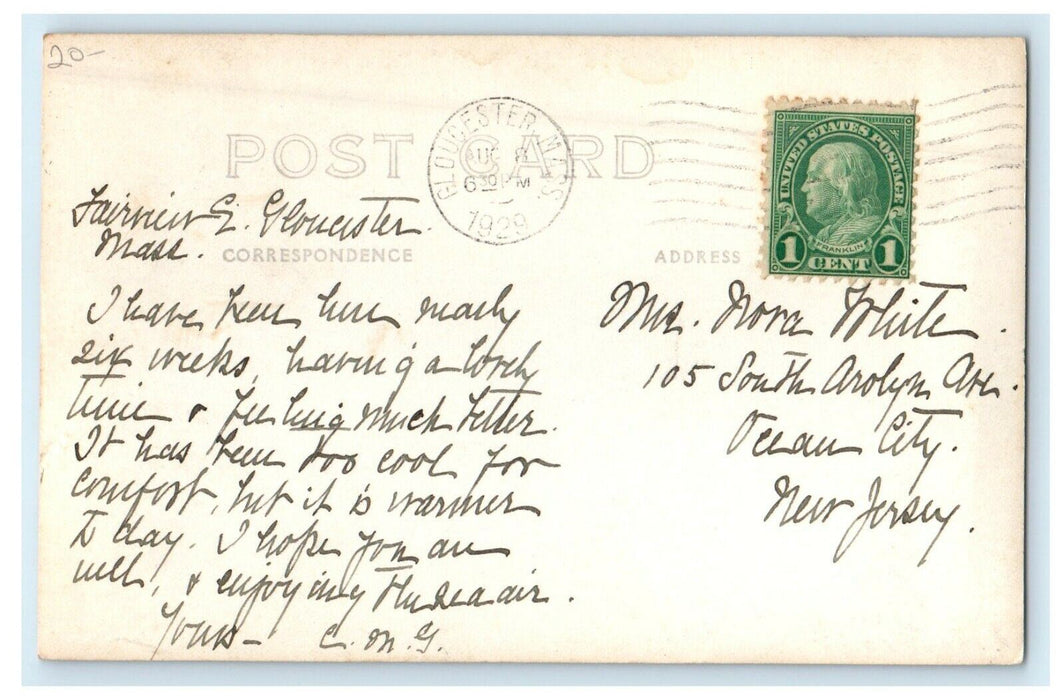 20-
POST CARD
GLOUCESTER, MASS.
AUG 8
630 PM
1929
UNITED STATES POSTAGE
FRANKLIN
1 CENT 1
Fairview E. Gloucester.
Mass.
CORRESPONDENCE
ADDRESS
I have been here nearly
six weeks, having a lovely
time & feeling much better.
It has been too cool for
comfort, but it is warmer
to day. I hope you are
well, & enjoying the sea air.
Yours- C. M. G.
Mrs. Nora White.
105 South Ave.
Ocean City.
New Jersey.